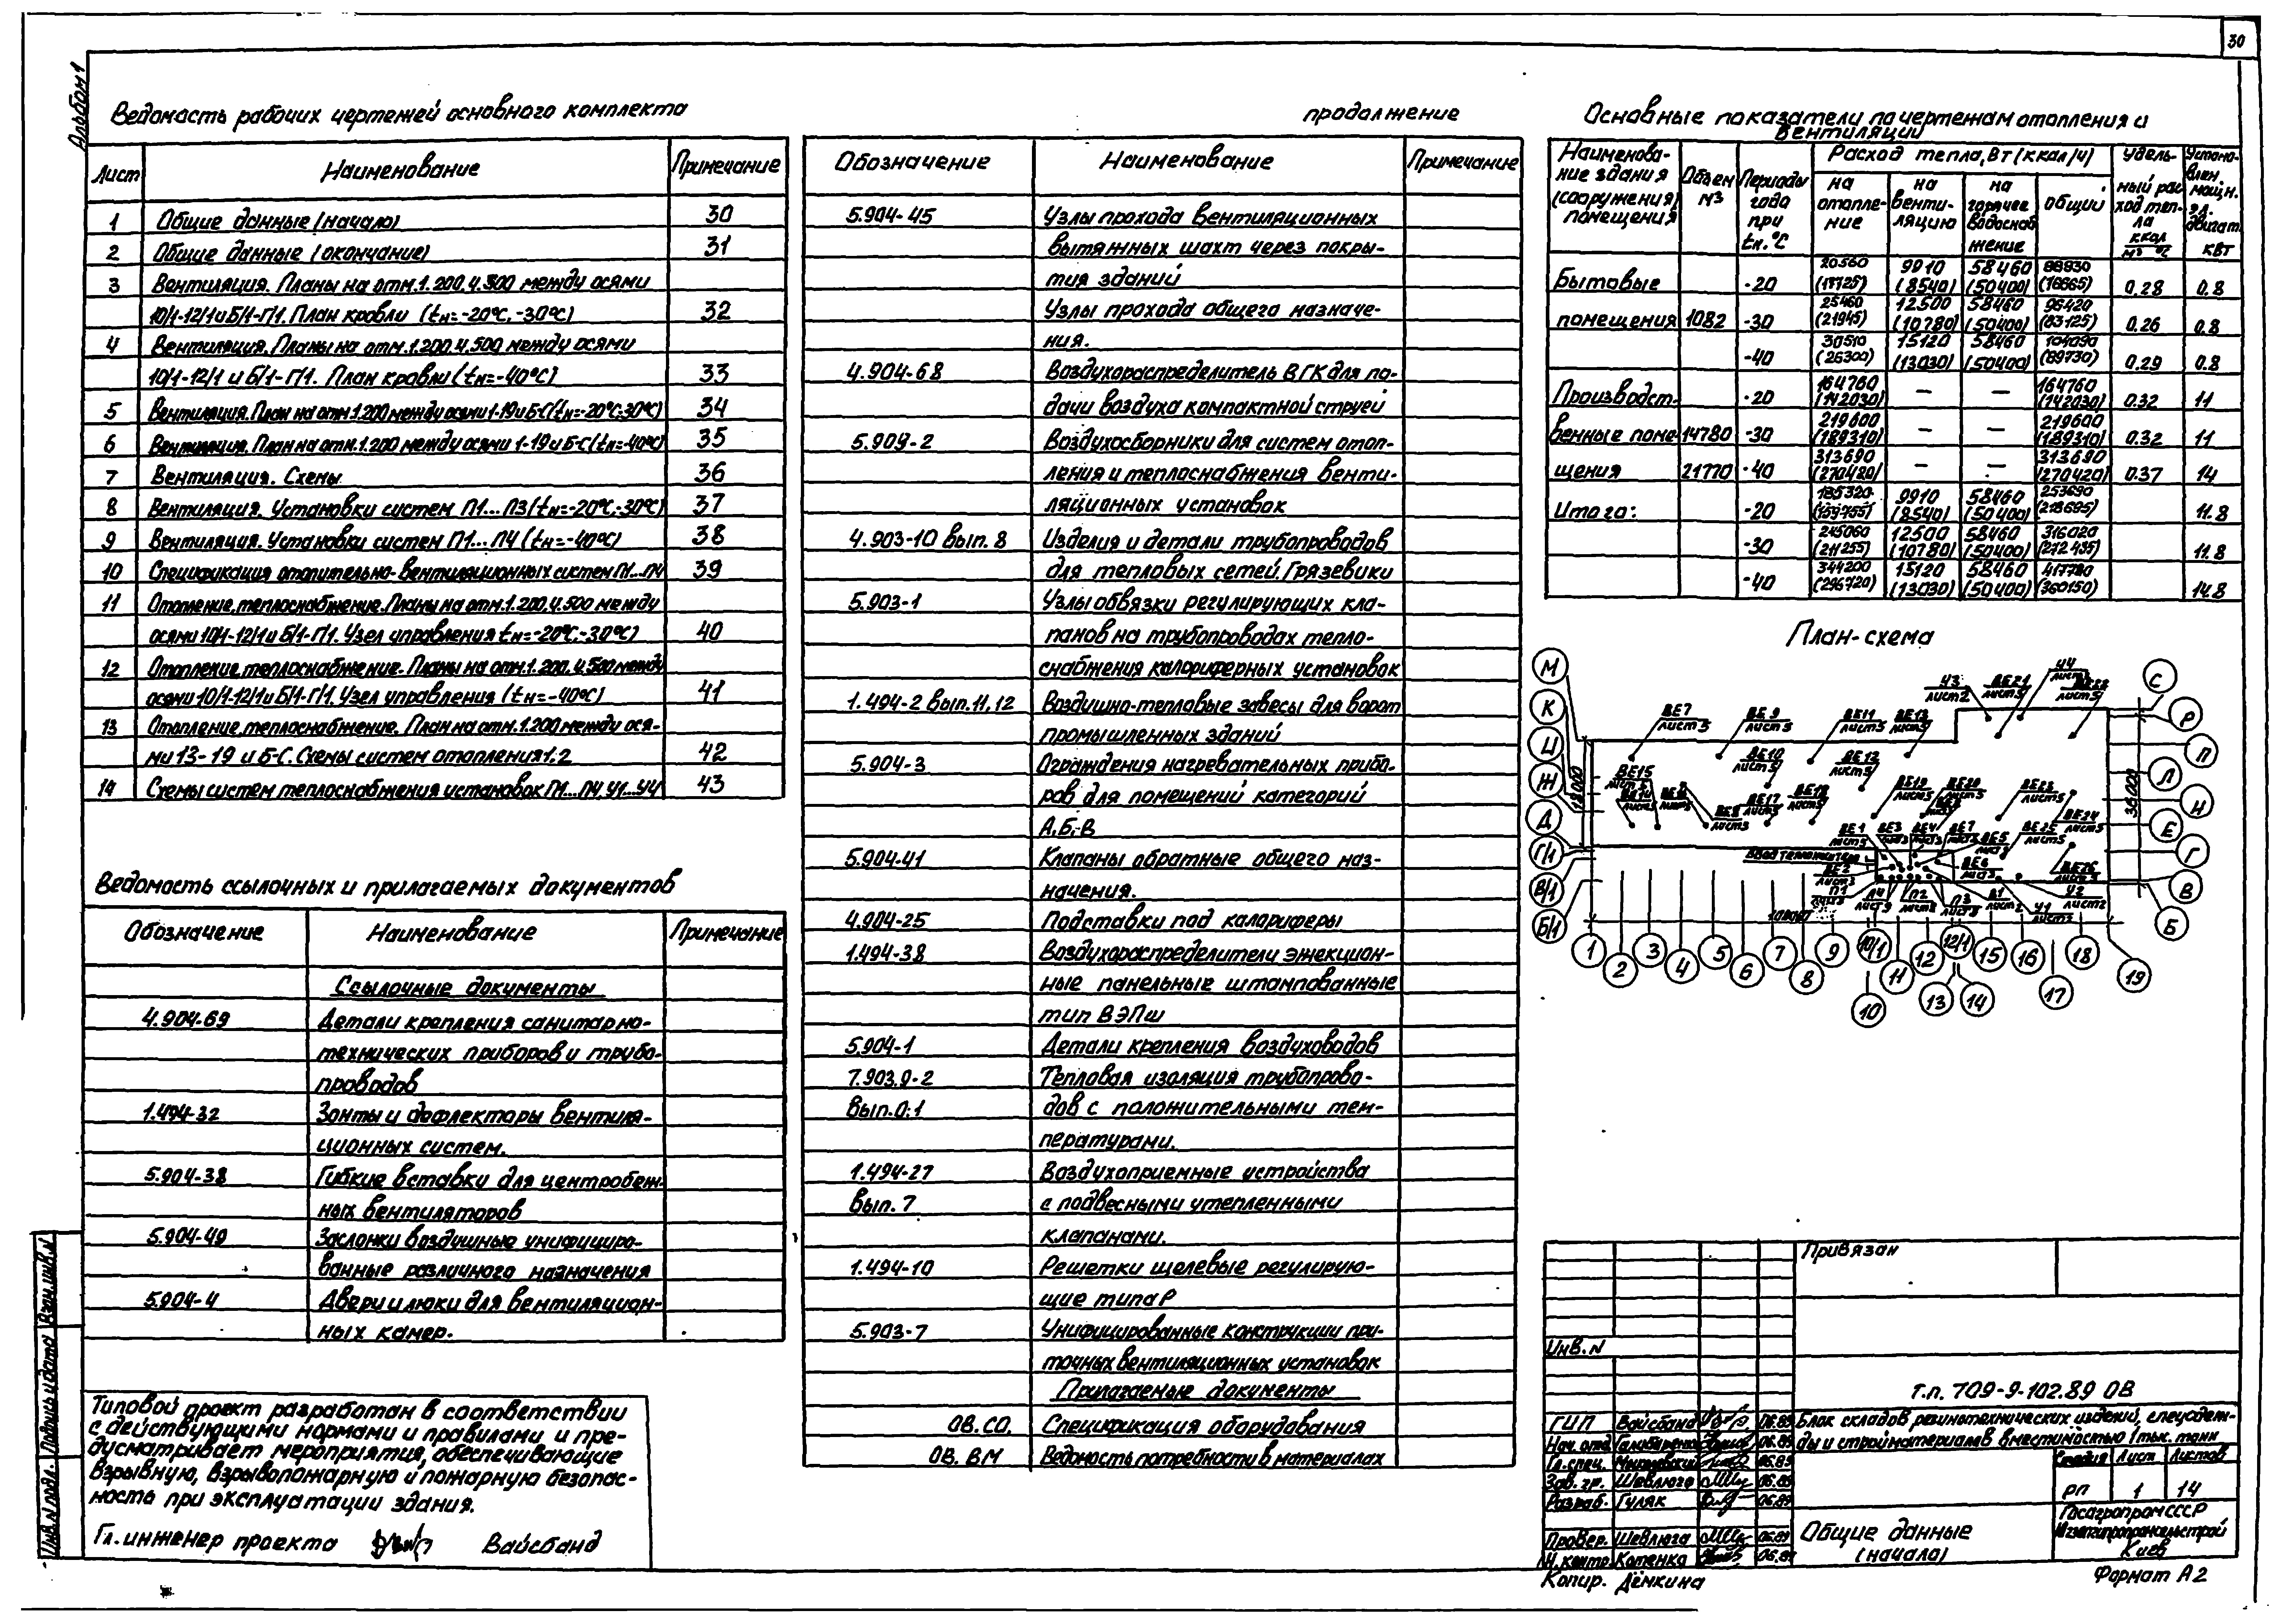 30
Альбом 1
Ведомость рабочих чертежей основного комплекта
Лист Наименование Примечание
1 Общие данные (начало) 30
2 Общие данные (окончание) 31
3 Вентиляция. Планы на отм. 1.200, 4.500 между осями
10/1-12/1 и Б/1-Г/1. План кровли (tн=-20°С, -30°С) 32
4 Вентиляция. Планы на отм. 1.200, 4.500 между осями
10/1-12/1 и Б/1-Г/1. План кровли (tн=-40°С) 33
5 Вентиляция. План на отм. 1.200 между осями 1-19 и Б-С (tн=-20°С-30°С) 34
6 Вентиляция. План на отм. 1.200 между осями 1-19 и Б-С (tн=-40°С) 35
7 Вентиляция. Схемы 36
8 Вентиляция. Установки систем П1...П3 (tн=-20°С-30°С) 37
9 Вентиляция. Установки систем П1...П4 (tн=-40°С) 38
10 Спецификация отопительно-вентиляционных систем П1...П4 39
11 Отопление, теплоснабжение. Планы на отм. 1.200, 4.500 между
осями 10/1-12/1 и Б/1-Г/1. Узел управления tн=-20°С-30°С) 40
12 Отопление, теплоснабжение. Планы на отм. 1.200, 4.500 между
осями 10/1-12/1 и Б/1-Г/1. Узел управления (tн=-40°С) 41
13 Отопление, теплоснабжение. План на отм. 1.200 между ося-
ми 13-19 и Б-С. Схемы систем отопления 1, 2 42
14 Схемы систем теплоснабжения установок П1...П4, У1...У4 43
Ведомость ссылочных и прилагаемых документов
Обозначение Наименование Примечание
Ссылочные документы
4.904-69 Детали крепления санитарно-
технических приборов и трубо-
проводов
1.494-32 Зонты и дефлекторы вентиля-
ционных систем.
5.904-38 Гибкие вставки для центробеж-
ных вентиляторов
5.904-49 Заслонки воздушные унифициро-
ванные различного назначения
5.904-4 Двери и люки для вентиляцион-
ных камер.
Типовой проект разработан в соответствии
с действующими нормами и правилами и пре-
дусматривает мероприятия, обеспечивающие
взрывную, взрывопожарную и пожарную безопас-
ность при эксплуатации здания.
Гл. инженер проекта Вайсбанд
Инв. N подл. Подпись и дата Взам. инв. N
продолжение
Обозначение Наименование Примечание
5.904-45 Узлы прохода вентиляционных
вытяжных шахт через покры-
тия зданий
Узлы прохода общего назначе-
ния.
4.904-68 Воздухораспределитель ВГК для по-
дачи воздуха компактной струей
5.909-2 Воздухосборники для систем отоп-
ления и теплоснабжения венти-
ляционных установок
4.903-10 вып. 8 Изделия и детали трубопроводов
для тепловых сетей. Грязевики
5.903-1 Узлы обвязки регулирующих кла-
панов на трубопроводах тепло-
снабжения калориферных установок
1.494-2 вып. 11, 12 Воздушно-тепловые завесы для ворот
промышленных зданий
5.904-3 Ограждения нагревательных прибо-
ров для помещений категорий
А, Б, В
5.904-41 Клапаны обратные общего наз-
начения.
4.904-25 Подставки под калориферы
1.494-38 Воздухораспределители эжекцион-
ные панельные штампованные
тип ВЭПш
5.904-1 Детали крепления воздуховодов
7.903.9-2 Тепловая изоляция трубопрово-
вып. 0.1 дов с положительными тем-
пературами.
1.494-27 Воздухоприемные устройства
вып. 7 с подвесными утепленными
клапанами.
1.494-10 Решетки щелевые регулирую-
щие типа Р
5.903-7 Унифицированные конструкции при-
точных вентиляционных установок
Прилагаемые документы
ОВ. СО. Спецификация оборудования
ОВ. ВМ Ведомость потребности в материалах
Основные показатели по чертежам отопления и
вентиляции
Наименова-
ние здания
(сооружения)
помещения
Объем
м3
Периоды
года
при
tн. °С
Расход тепла, Вт (ккал/ч)
на
отопле-
ние
на
венти-
ляцию
на
горячее
водоснаб
жение
общий
Удель-
ный рас
ход теп-
ла
ккал
м³ °С
Установ-
лен.
мощн.
эл.
двигат.
кВт
Бытовые -20 20560 (17725) 9910 (8540) 58460 (50400) 88930 (76665) 0.28 0.8
помещения 1082 -30 25460 (21945) 12500 (10780) 58460 (50400) 96420 (83125) 0.26 0.8
-40 30510 (26300) 15120 (13030) 58460 (50400) 104090 (89730) 0.29 0.8
Производст- -20 164760 (142030) — — 164760 (142030) 0.32 11
венные поме- 14780 -30 219600 (189310) — — 219600 (189310) 0.32 11
щения 21770 -40 313690 (270420) — — 313690 (270420) 0.37 14
Итого: -20 185320 (159755) 9910 (8540) 58460 (50400) 253690 (218695) 11.8
-30 245060 (211255) 12500 (10780) 58460 (50400) 316020 (272435) 11.8
-40 344200 (296720) 15120 (13030) 58460 (50400) 417780 (360150) 14.8
План-схема
М К И Ж Д Г/1 В/1 Б/1
С Р П Л Н Е Г В Б
У3 лист 2 ВЕ21 лист 5 У4
ВЕ7 лист 5 ВЕ9 лист 5 ВЕ11 лист 5 ВЕ13 лист 5
ВЕ10 лист 5 ВЕ12 лист 5
ВЕ15 лист 5
ВЕ17 лист 5 ВЕ18 лист 5 ВЕ19 лист 5 ВЕ20 лист 5 ВЕ23 лист 5 ВЕ24 лист 5
ВЕ1 ВЕ3 ВЕ4 ВЕ5 ВЕ25 лист 5
Ввод теплоносителя
ВЕ2 лист 3 ВЕ6 лист 3 ВЕ26
П1 П4 лист 9 П2 П3 В1 У1 У2 лист 2
36000
1 2 3 4 5 6 7 8 9 10/1 10 11 12 12/1 13 14 15 16 17 18 19
Привязан
Инв. N
т.п. 709-9-102.89 ОВ
Блок складов резинотехнических изделий, спецодеж-
ды и стройматериалов вместимостью 1 тыс. тонн
ГИП Вайсбанд 06.89
Нач. отд. 06.89
Гл. спец. 06.89
Зав. гр. Шевлюга 06.89
Разраб. Гуляк 06.89
Провер. Шевлюга 06.89
Н. контр. Котенко 06.89
Стадия Лист Листов
РП 1 14
Общие данные
(начало)
Госагропром СССР
Киев
Копир. Дёмкина
Формат А2